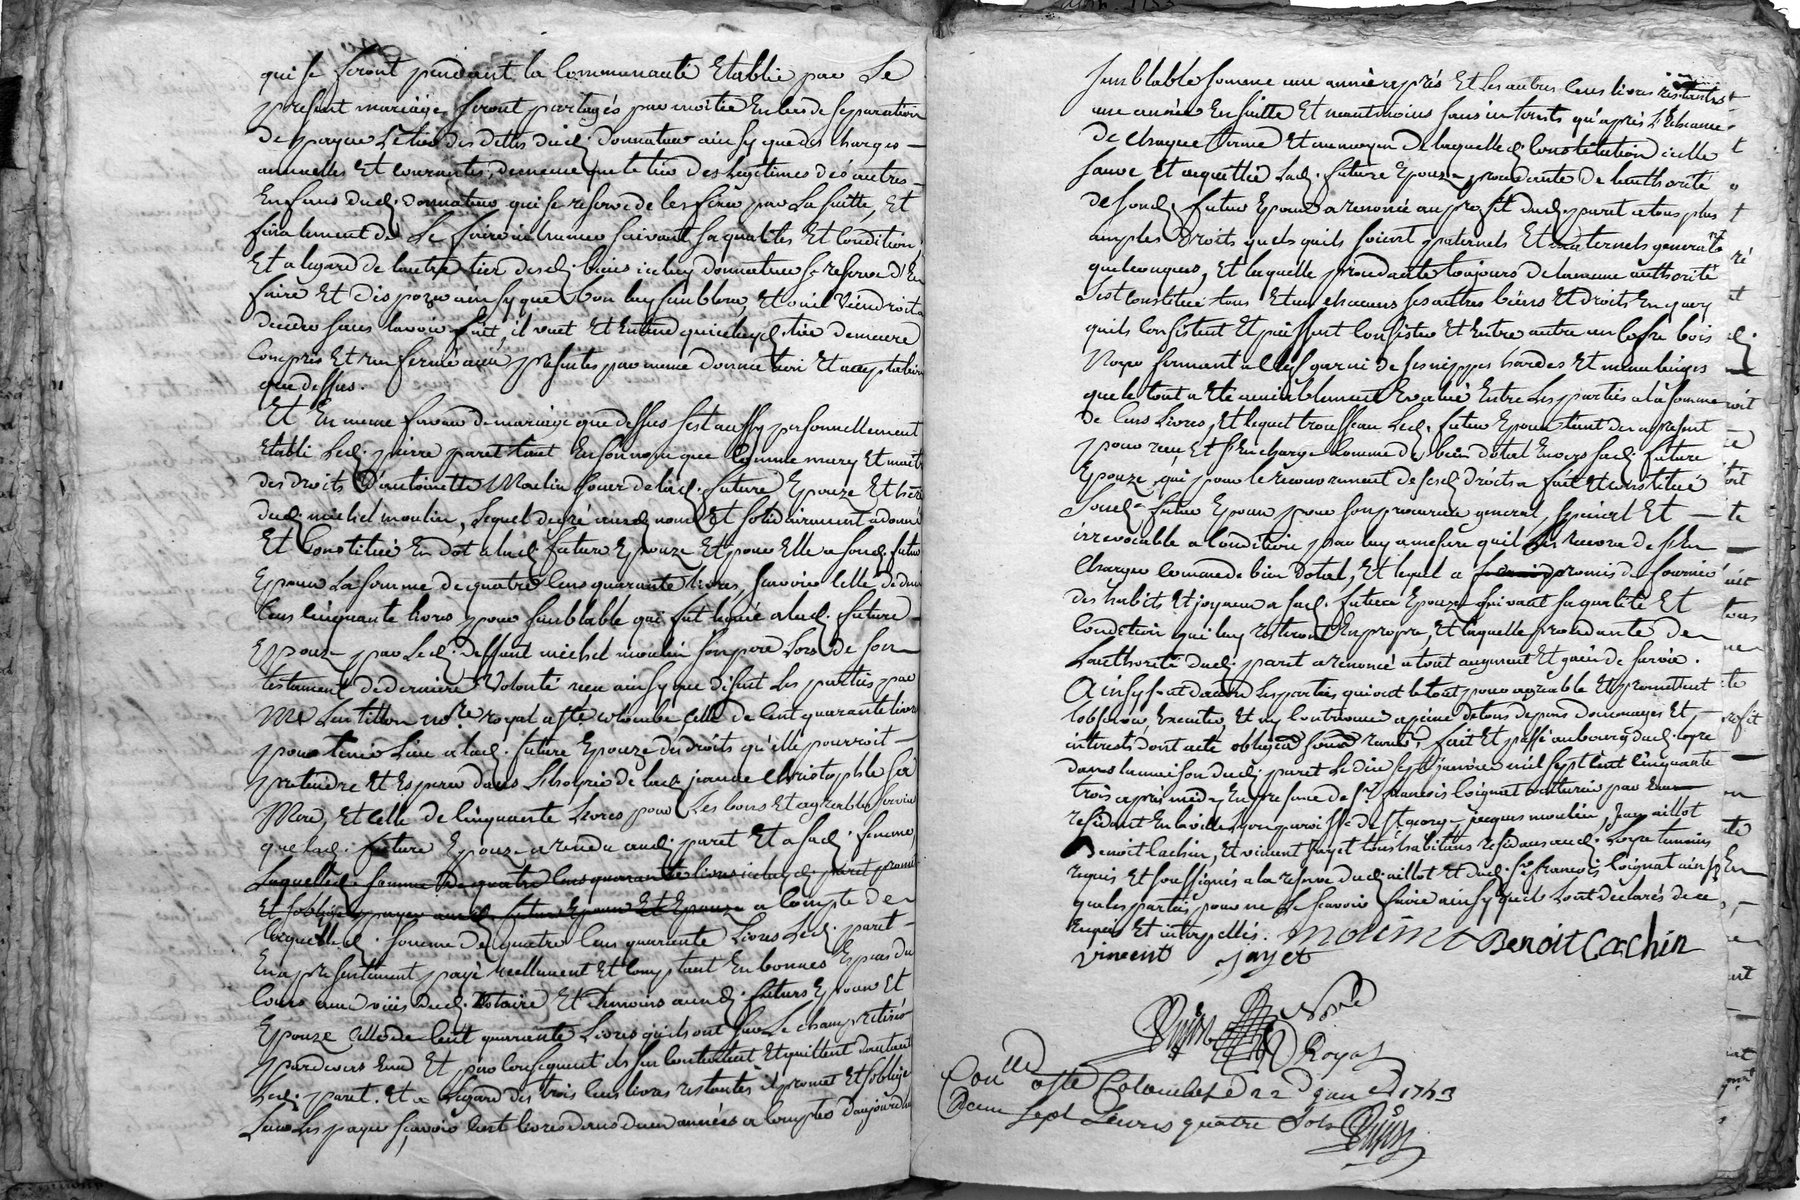 qui se feront pendant la Communauté Etablie par Le
present mariage seront partagés par moitié En cas de separation
de payer Le tier des dettes dud. donnateur ainsy que des charges
annuelles Et courantes, dememe que le tier des Legitimes des autres
Enfans dud. donnateur qui se reserve de les fixer par La suitte, Et
finalement de Le faire inhumer suivant sa qualités Et Condition,
Et a legard de lautre tier desd. biens iceluy donnateur se reserve d'En
faire Et disposer ainsy que bon luy semblera, Et ou il viendroit a
deceder sans lavoir fait, il veut Et Entend qu'iceluyd. tier demeure
Compris Et renfermé aux presentes par meme donnation Et acceptation
que dessus.
Et En meme faveur de mariage que dessus sest aussy personnellement
Etabli Led. pierre paret tant En son nom que Comme mary Et maitre
des droits D'antoinette Moulin soeur de lad. future Epouze Et here
dud. michel moulin, Lequel de gré auxd. noms Et solidairement a donné
Et Constitué En dot a lad. future Epouze Et pour Elle a sond. futur
Epoux La somme de quatre Cens quarante livres, scavoir Celle de deux
Cens Cinquante livres pour semblable qui fut leguée a lad. future
Epouze par Led. deffunt michel moulin son pere Lors de son
testament de derniere Volonté reçu ainsy que disent Les parties par
Me Lentillon nore royal a ste colombe, Celle de Cent quarante livres
pour tenir Lieu a lad. future Epouze des droits qu'elle pourroit
pretendre Et Esperer dans L'hoirie de lad. jeanne Christophle sa
Mere, Et Celle de Cinquante Livres pour Les bons Et agreables services
que lad. future Epouze a rendu aud. paret Et a sad. femme,
Laquelled. somme de quatre Cens quarante livres iceluyd. paret promet
Et s'oblige payer auxd. futur Epoux Et Epouze a Compte de
Laquelled. somme de quatre Cens quarante Livres Led. paret
En a presentement payé reellement Et Comptant En bonnes Especes du
Cours aux vües dud. Notaire Et temoins auxd. futurs Epoux Et
Epouze Celle de Cent quarante Livres qu'ils ont sur Le champ retirés
pardevers Eux Et par Consequent ils s'en Contentent Et quittent d'autant
Led. paret. Et a Legard des trois Cens livres restantes il promet Et s'oblige
Leur Les payer, scavoir Cent livres dans deux années a Compter d'aujourdhuy
semblable somme une année après Et Les autres Cens livres restantes
une année Ensuitte Et neantmoins sans interests qu'après L'Echeance
de Chaque terme Et au moyen de laquelled. Constitution icelle
sauve Et acquittée Lad. future Epouze procedante de Lauthorité
de sond. futur Epoux a renoncé au profit dud. paret a tous plus
amples Droits quels quils soient paternels Et maternels generalt
quelconques, Et laquelle procedante toujours de la meme authorité
s'est Constitué tous Et un chacuns ses autres biens Et droits En quoy
quils Consistent Et puissent Consister Et Entre autre un Cofre bois
Noyer fermant a Clef garni de ses nippes hardes Et menu linges
que le tout a Eté amiablement Evalué Entre Les parties a la somme
de Cens Livres, Et lequel trousseau Led. futur Epoux tient des a present
pour reçu Et s'En charge Comme de bien dotal Envers sad. future
Epouze, qui pour le recouvrement de sesd. droits a fait Et Constitué
sond. futur Epoux pour son procureur general, special Et
irrevocable a Condition par luy a mesure quil Les recevra de s'En
Charger Comme de bien dotal, Et lequel a promis de fournir
des habits Et joyeaux a sad. future Epouze suivant sa qualité Et
Condition qui luy resteront En propre, Et laquelle procedante de
Lauthorité dud. paret a renoncé a tout augment Et gain de survie.
Ainsy sont daccord Les parties qui ont le tout pour agreable Et promettent
lobserver Executer Et ny Contrevenir a peine de tous depens dommages Et
interests dont acte obligeant renonçt, fait Et passé au bourg dud. loyre
dans la maison dud. paret Le dix sept janvier mil sept Cent Cinquante
trois après midy En presence de sr francois Coignat
residant En la ville Lyon paroisse de st george, jacques moulin, jean aillot
Benoit Cachin, Et vincent jayet tous habitans residans aud. Loyre temoins
requis Et soussignés a la reserve dud. aillot Et dud. sr francois Coignat ainsy
que les parties pour ne Le scavoir faire ainsy quils Lont declarés de ce
Enquis Et interpellés. moulin Benoit Cachin
vincent jayet
Nore
Royal
Conllé a ste Colombe Le 22e janer 1753
Reçu sept Livres quatre sols